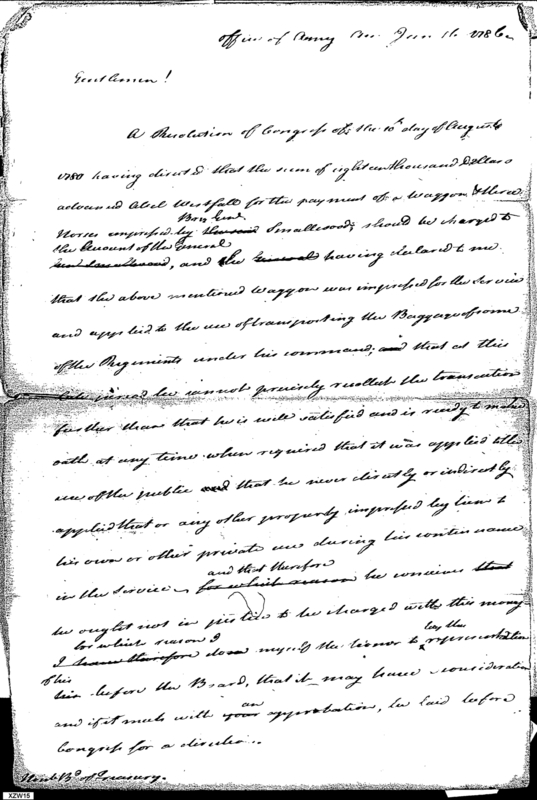 Office of Army Acc. Jan 16 1786
Gentlemen!
A Resolution of Congress of the 10th day of August
1780 having directed that the sum of eighteen thousand Dollars
advanced Abel Westfall for the payment of a Waggon & three
Brig Genl.
Horses impressed by Smallwood; should be charged to
the Account of the General
Genl Smallwood, and the General having declared to me
that the above mentioned Waggon was impressed for the Service
and applied to the use of transporting the Baggage of some
of the Regiments under his command; and that at this
late period he cannot precisely recollect the transaction
further than that he is well satisfied and is ready to make
oath at any time when required that it was applied to the
use of the public and that he never directly or indirectly
applied that or any other property impressed by him to
his own or other private use during his continuance
and that therefore
in the Service, for which reason he conceives that
he ought not in justice to be charged with this money
for which reason I
by the
I have therefore do myself the honor to representation
of his
before the Board, that it may have consideration
an
and if it meets with your approbation, be laid before
Congress for a direction.
Honble Bd of Treasury.
XZW15